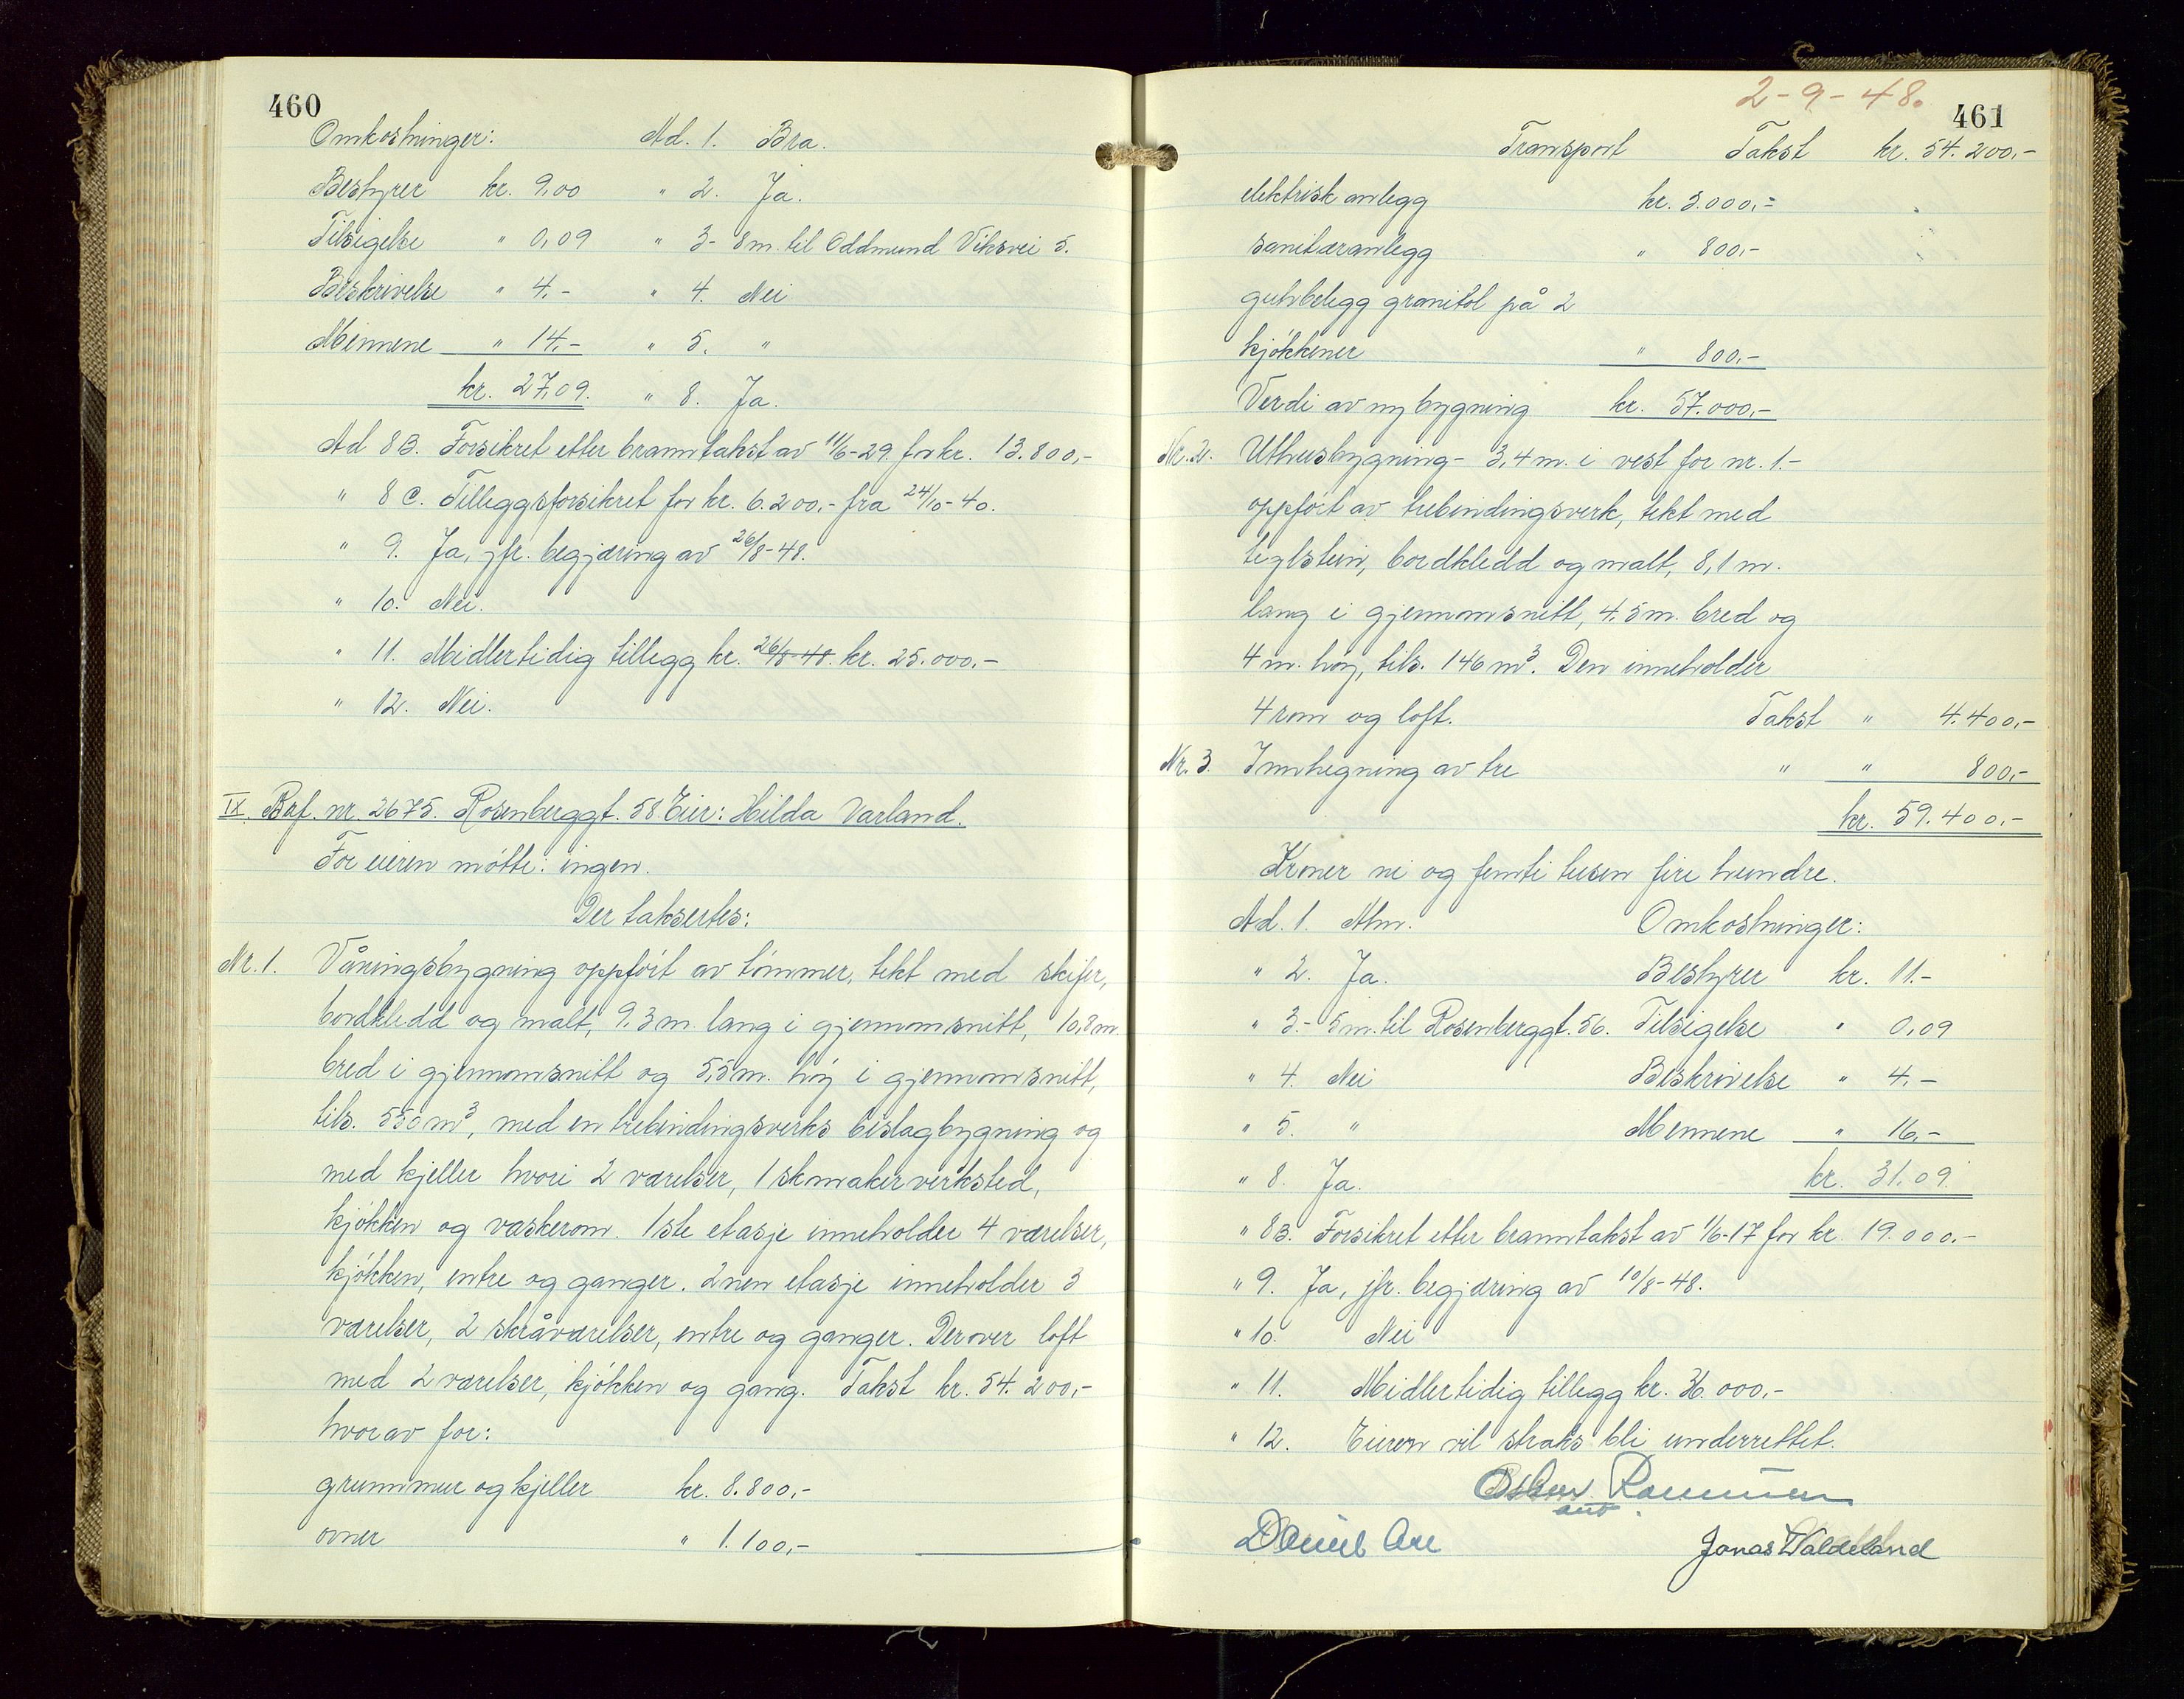 460
Omkostninger: Ad. 1. Bra.
Bestyrer kr. 9,00 " 2. Ja.
Tilsigelse " 0,09 " 3- 8 m. til Oddmund Viksvei 5.
Beskrivelse " 4,- " 4. Nei
Mennene " 14,- " 5. "
kr. 27,09. " 8. Ja.
Ad 8B. Forsikret etter branntakst av 11/6-29 for kr. 13.800,-
" 8 C. Tilleggsforsikret for kr. 6.200,- fra 24/10-40.
" 9. Ja, jfr. begjæring av 26/8-48.
" 10. Nei.
" 11. Midlertidig tillegg kr. 26/8-48. kr. 25.000,-
" 12. Nei.
IX. Brf. nr. 2675. Rosenberggt. 58 Eier: Hilda Varland.
For eieren møtte: ingen.
Der taksertes:
Nr. 1. Våningsbygning oppført av tømmer, tekt med skifer,
bordkledd og malt, 9,3 m. lang i gjennomsnitt, 10,8 m.
bred i gjennomsnitt og 5,5 m. høy i gjennomsnitt,
tils. 550 m³, med en trebindingsverks bislagbygning og
med kjeller hvori 2 værelser, 1 skomakerverksted,
kjøkken og vaskerom. 1ste etasje inneholder 4 værelser,
kjøkken, entre og ganger. 2nen etasje inneholder 3
værelser, 2 skråværelser, entre og ganger. Derover loft
med 2 værelser, kjøkken og gang. Takst kr. 54.200,-
hvorav for:
grunnmur og kjeller kr. 8.800,-
ovner " 1.100,-
2-9-48.
461
Transport Takst kr. 54.200,-
elektrisk anlegg kr. 3.000,-
sanitæranlegg " 800,-
gulvbelegg granitol på 2
kjøkkener " 800,-
Verdi av ny bygning kr. 57.000,-
Nr. 2. Uthusbygning - 3,4 m. i vest for nr. 1.-
oppført av trebindingsverk, tekt med
teglstein, bordkledd og malt, 8,1 m.
lang i gjennomsnitt, 4,5 m. bred og
4 m. høy, tils. 146 m³. Den inneholder
4 rom og loft. Takst " 4.400,-
Nr. 3. Innhegning av tre " " 800,-
kr. 59.400,-
Kroner ni og femti tusen fire hundre.
Ad. 1. Alm. Omkostninger:
" 2. Ja. Bestyrer kr. 11.-
" 3.- 5 m. til Rosenberggt. 56. Tilsigelse " 0,09
" 4. Nei Beskrivelse " 4,-
" 5. " Mennene " 16,-
" 8. Ja. kr. 31,09.
" 8B. Forsikret etter branntakst av 1/6-17 for kr. 19.000.-
" 9. Ja, jfr. begjæring av 10/8-48.
" 10. Nei
" 11. Midlertidig tillegg kr. 36.000,-
" 12. Eieren vil straks bli underrettet.
Jonas Waldeland